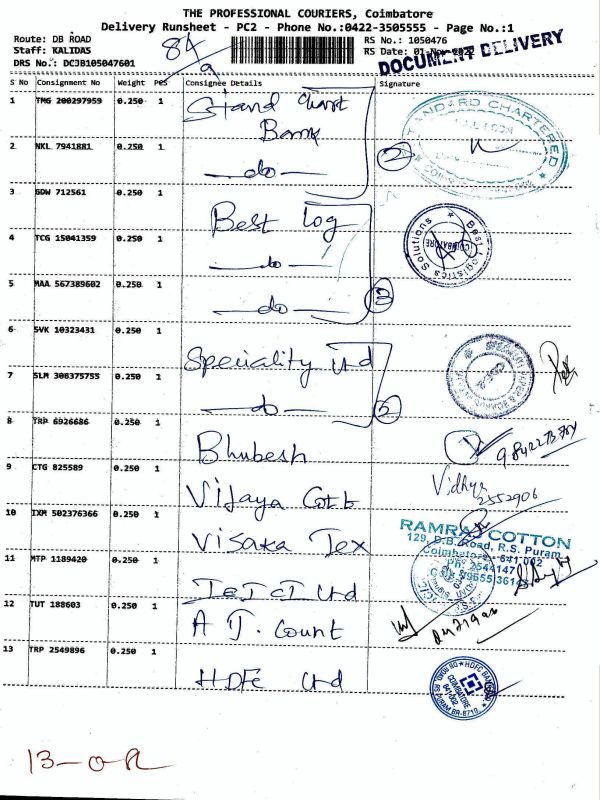 THE PROFESSIONAL COURIERS, Coimbatore
Delivery Runsheet - PC2 - Phone No.:0422-3505555 - Page No.:1
Route: DB ROAD
Staff: KALIDAS
DRS No.: DCJB105047601
84
RS No.: 1050476
RS Date: 01-Nov-2022
DOCUMENT DELIVERY
S No Consignment No Weight PES Consignee Details Signature
1 TMG 200297959 0.250 1 Stand Chart Bank
STANDARD CHARTERED
2 NKL 7941881 0.250 1 —do— 2
3 GDW 712561 0.250 1 Best Log
4 TCG 15041359 0.250 1 —do—
Best Logistics Solutions
COIMBATORE
5 MAA 567389602 0.250 1 —do— 3
6 SVK 10323431 0.250 1 Speciality Ltd
7 SLM 306375755 0.250 1 —do— 2
8 TRP 6926686 0.250 1 Bhubesh
9 CTG 825589 0.250 1 Vijaya Cott
Vidhya
2552906
10 IXM 502376366 0.250 1 Visaka Tex
RAMRAJ COTTON
129, D.B.Road, R.S. Puram,
Coimbatore - 641 002
Ph: 2544147
11 MTP 1189420 0.250 1 Ltd
12 TUT 188603 0.250 1 A J. Count
13 TRP 2549896 0.250 1 HDFC Ltd
HDFC BANK
COIMBATORE
641 002
13-0-R